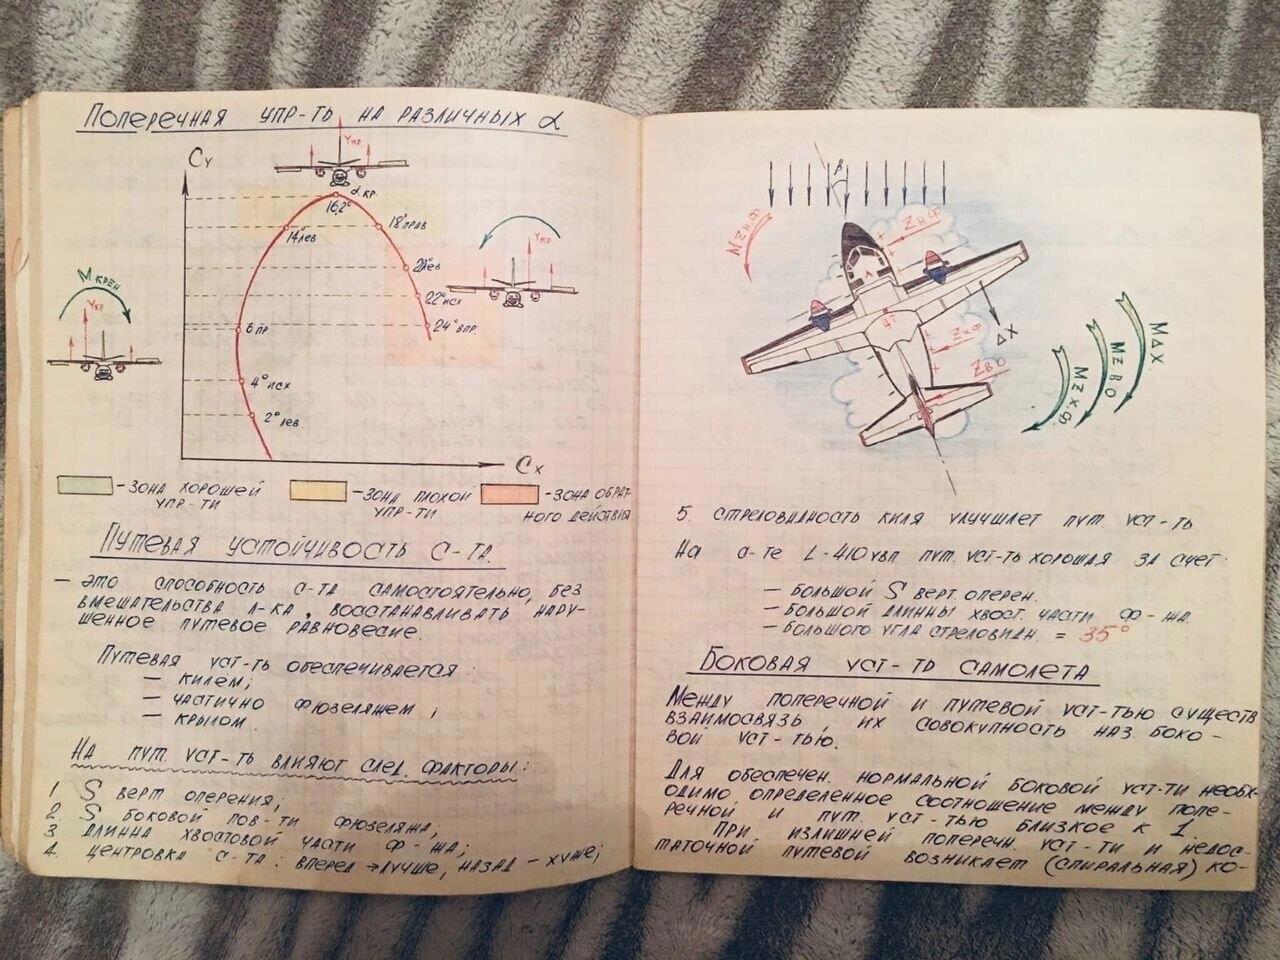 Поперечная упр-ть на различных α
Cy
Yкр.
α.кр.
16,2°
14°лев
18°прав
Yкр.
Mкрен
Yкр.
22°исх
6 пр
24° впр.
4° исх
2° лев
Cx
-зона хорошей
упр-ти
-зона плохой
упр-ти
-зона обрат-
ного действия
Путевая устойчивость с-та.
— это способность с-та самостоятельно, без
вмешательства л-ка, восстанавливать нару-
шенное путевое равновесие.
Путевая уст-ть обеспечивается:
— килем;
— частично фюзеляжем;
— крылом.
На пут. уст-ть влияют след. факторы:
1 S верт. оперения;
2. S боковой пов-ти фюзеляжа;
3 длинна хвостовой части ф-жа;
4. центровка с-та: вперед → лучше, назад — хуже;
β
MZн.ф
Zн.ф
ΔX
Zх.ф
Zво
MΔX.
MZВО
MZх.ф.
5. стреловидность киля улучшлет пут. уст-ть
На с-те L-410увп пут. уст-ть хорошая за счет:
— большой S верт. оперен.
— большой длинны хвост. части ф-жа.
— большого угла стреловидн. = 35°
Боковая уст-ть самолета
Между поперечной и путевой уст-тью существ
взаимосвязь, их совокупность наз. боко-
вой уст-тью.
Для обеспечен. нормальной боковой уст-ти необх-
одимо определенное соотношение между попе-
речной и пут. уст-тью близкое к 1.
При излишней поперечн. уст-ти и недос-
таточной путевой возникает (спиральная) ко-